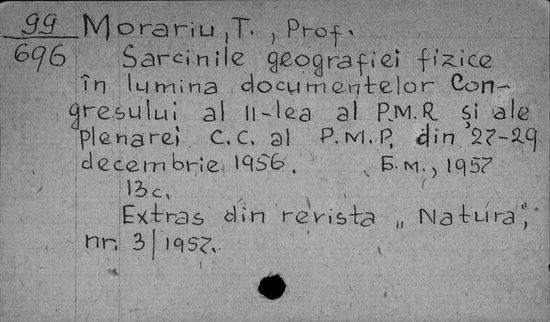 99 Morariu, T., Prof.
696 Sarcinile geografiei fizice
în lumina documentelor Con-
gresului al II-lea al P.M.R și ale
plenarei C.C. al P.M.P, din 27-29
decembrie 1956. Б.м., 1957
13 с.
Extras din revista „Natura",
nr. 3/1957.